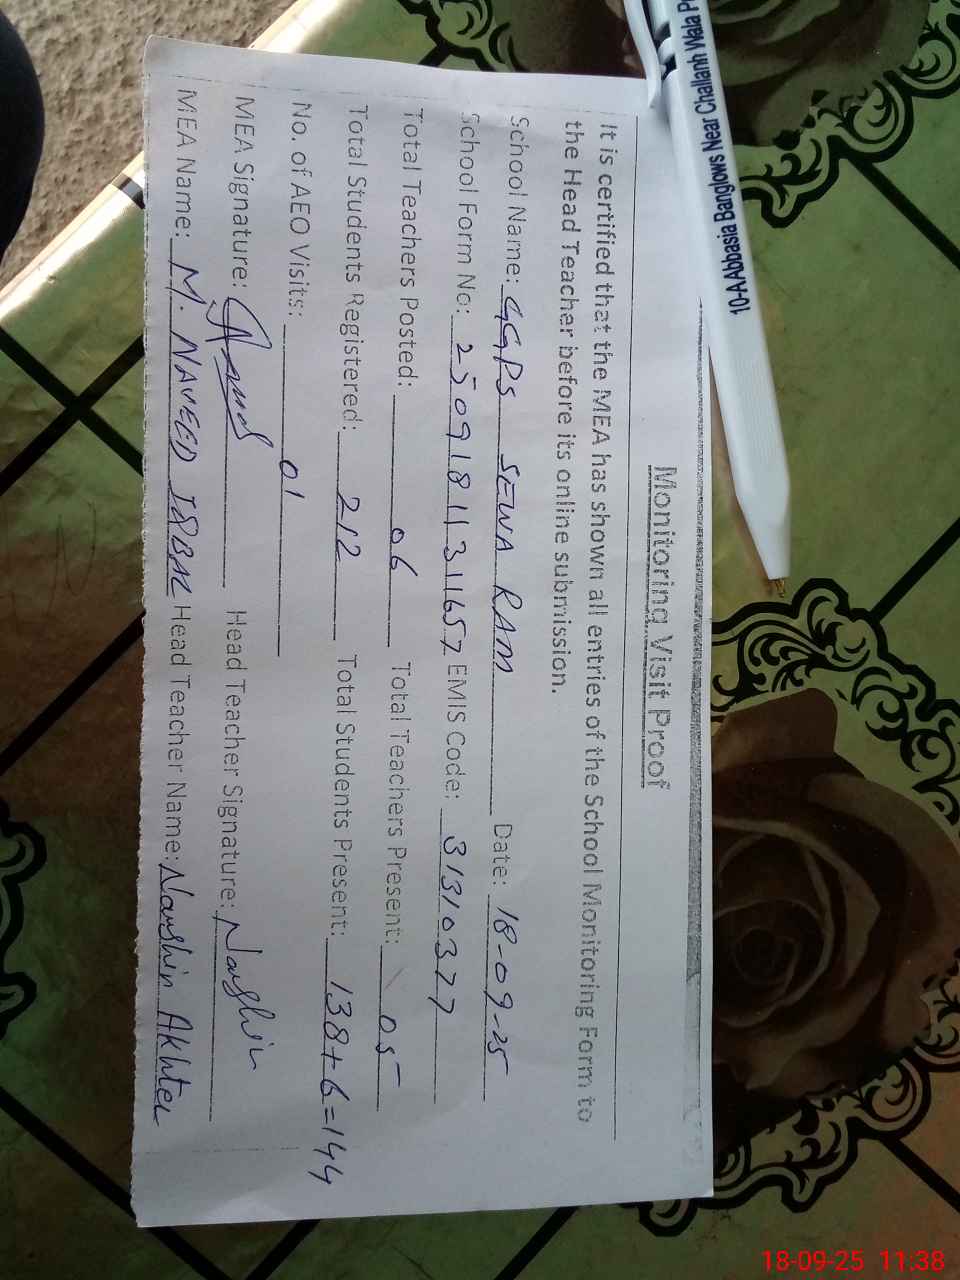 Monitoring Visit Proof
It is certified that the MEA has shown all entries of the School Monitoring Form to
the Head Teacher before its online submission.
School Name: GGPS SEWA RAM Date: 18-09-25
School Form No: 2509181131657 EMIS Code: 31310377
Total Teachers Posted: 06 Total Teachers Present: 05
Total Students Registered: 212 Total Students Present: 138+6=144
No. of AEO Visits: 01
MEA Signature: Head Teacher Signature: Naushin
MEA Name: M. NAVEED IQBAL Head Teacher Name: Naushin Akhter
10-A Abbasia Banglows Near Challanh Wala P
18-09-25 11:38